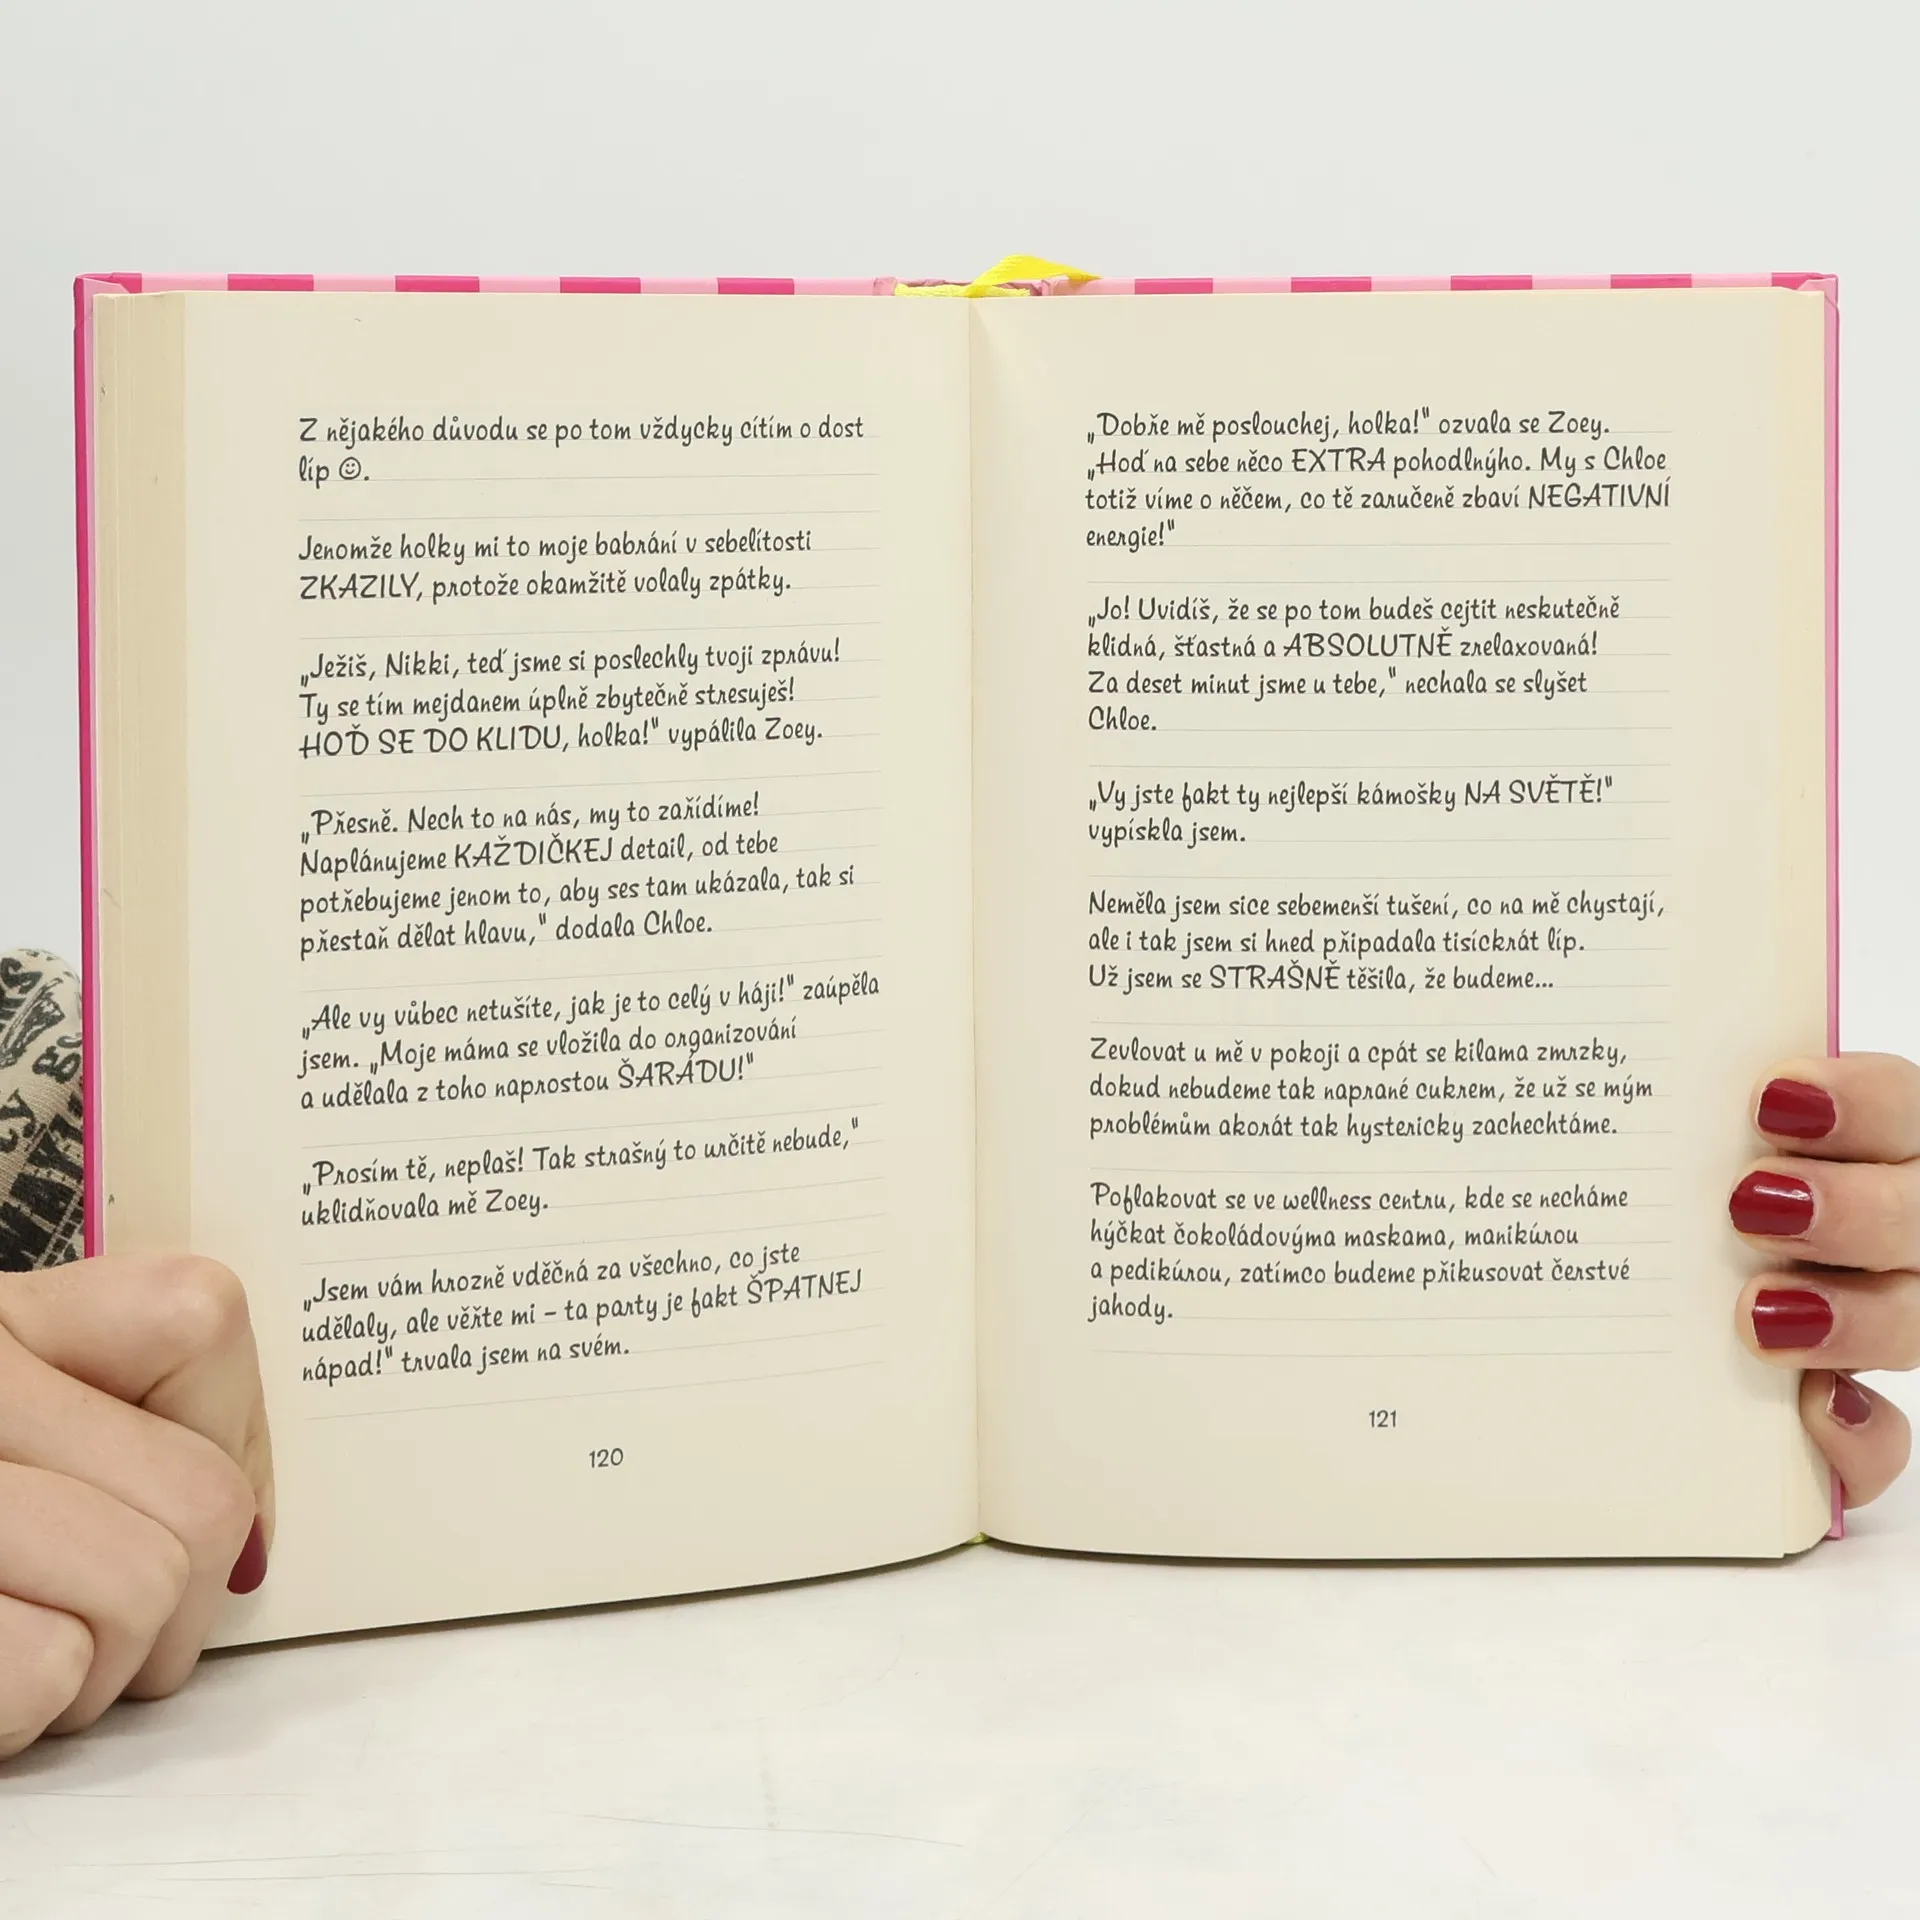 Z nějakého důvodu se po tom vždycky cítím o dost
líp ☺.
Jenomže holky mi to moje babrání v sebelítosti
ZKAZILY, protože okamžitě volaly zpátky.
„Ježiš, Nikki, teď jsme si poslechly tvoji zprávu!
Ty se tím mejdanem úplně zbytečně stresuješ!
HOĎ SE DO KLIDU, holka!" vypálila Zoey.
„Přesně. Nech to na nás, my to zařídíme!
Naplánujeme KAŽDIČKEJ detail, od tebe
potřebujeme jenom to, aby ses tam ukázala, tak si
přestaň dělat hlavu," dodala Chloe.
„Ale vy vůbec netušíte, jak je to celý v háji!" zaúpěla
jsem. „Moje máma se vložila do organizování
a udělala z toho naprostou ŠARÁDU!"
„Prosím tě, neplaš! Tak strašný to určitě nebude,"
uklidňovala mě Zoey.
„Jsem vám hrozně vděčná za všechno, co jste
udělaly, ale věřte mi – ta party je fakt ŠPATNEJ
nápad!" trvala jsem na svém.
120
„Dobře mě poslouchej, holka!" ozvala se Zoey.
„Hoď na sebe něco EXTRA pohodlnýho. My s Chloe
totiž víme o něčem, co tě zaručeně zbaví NEGATIVNÍ
energie!"
„Jo! Uvidíš, že se po tom budeš cejtit neskutečně
klidná, šťastná a ABSOLUTNĚ zrelaxovaná!
Za deset minut jsme u tebe," nechala se slyšet
Chloe.
„Vy jste fakt ty nejlepší kámošky NA SVĚTĚ!"
vypískla jsem.
Neměla jsem sice sebemenší tušení, co na mě chystají,
ale i tak jsem si hned připadala tisíckrát líp.
Už jsem se STRAŠNĚ těšila, že budeme...
Zevlovat u mě v pokoji a cpát se kilama zmrzky,
dokud nebudeme tak naprané cukrem, že už se mým
problémům akorát tak hystericky zachechtáme.
Poflakovat se ve wellness centru, kde se necháme
hýčkat čokoládovýma maskama, manikúrou
a pedikúrou, zatímco budeme přikusovat čerstvé
jahody.
121